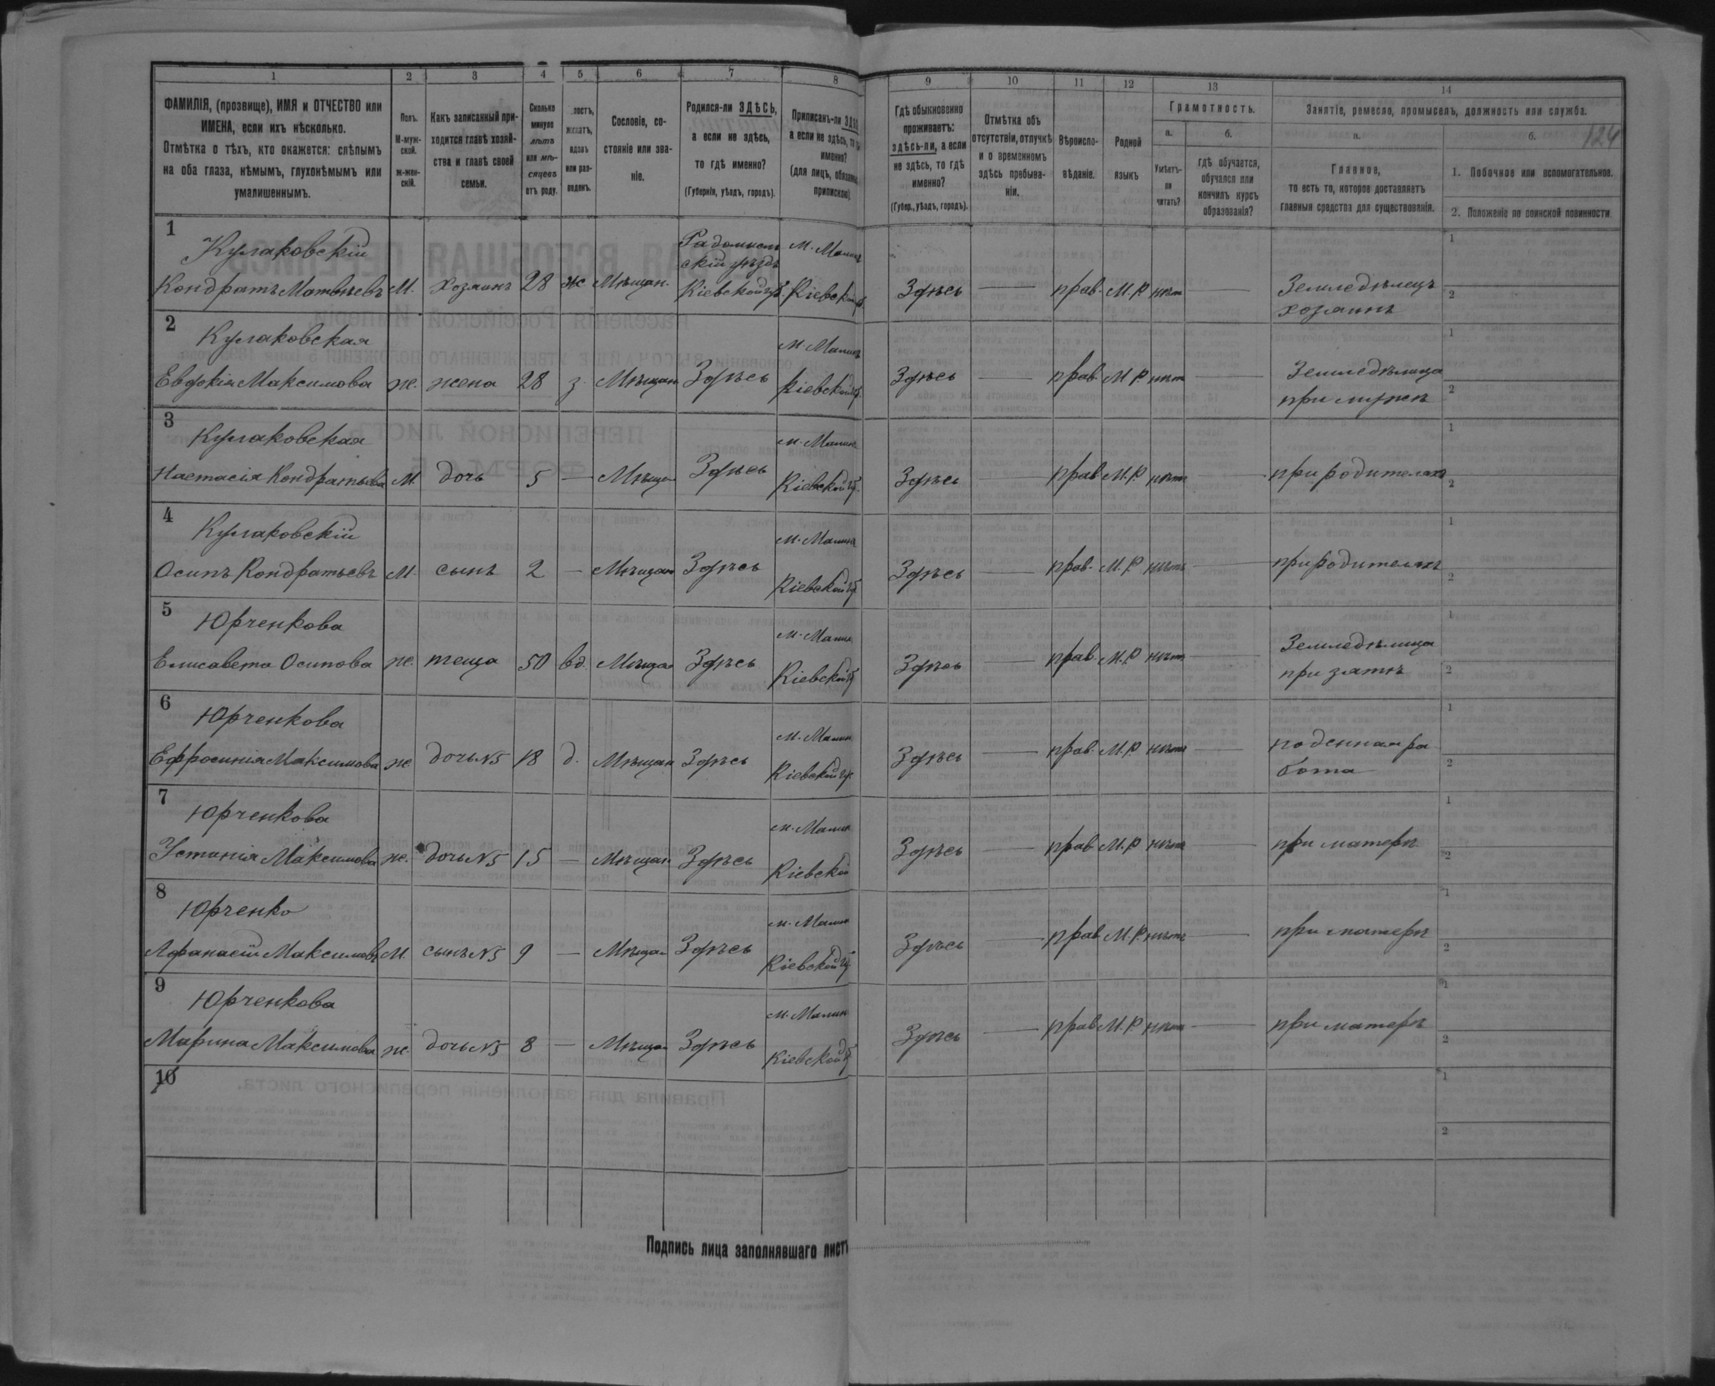 1 2 3 4 5 6 7 8 9 10 11 12 13 14
124
ФАМИЛІЯ, (прозвище), ИМЯ и ОТЧЕСТВО или
ИМЕНА, если ихъ нѣсколько.
Отмѣтка о тѣхъ, кто окажется: слѣпымъ
на оба глаза, нѣмымъ, глухонѣмымъ или
умалишеннымъ.
Полъ.
М-муж-
ской.
ж-жен-
скій.
Какъ записанный при-
ходится главѣ хозяй-
ства и главѣ своей
семьи.
Сколько
минуло
лѣтъ
или мѣ-
сяцевъ
отъ роду.
лостъ,
женатъ,
вдовъ
или раз-
веденъ.
Сословіе, со-
стояніе или зва-
ніе.
Родился-ли ЗДѢСЬ,
а если не здѣсь,
то гдѣ именно?
(Губернія, уѣздъ, городъ).
Приписанъ-ли
а если не здѣсь,
именно?
(для лицъ,
Гдѣ обыкновенно
проживаетъ:
здѣсь-ли, а если
не здѣсь, то гдѣ
именно?
(Губер., уѣздъ, городъ).
Отмѣтка объ
отсутствіи, отлучкѣ
и о временномъ
здѣсь пребыва-
ніи.
Вѣроиспо-
вѣданіе.
Родной
языкъ
Грамотность.
а.
Умѣетъ-
ли
читать?
б.
гдѣ обучается,
обучался или
кончилъ курсъ
образованія?
Занятіе, ремесло, промыселъ, должность или служба.
а.
Главное,
то есть то, которое доставляетъ
главныя средства для существованія.
б.
1. Побочное или вспомогательное.
2. Положеніе по воинской повинности.
1
Кулаковскій Радомысль м. Малинъ
скій уѣздъ
Кондратъ Матвѣевъ М. хозяинъ 28 ж Мѣщан. Кіевской губ. Кіевской Здѣсь — прав. М.Р нѣт Земледѣлецъ
хозяинъ
2
Кулаковская м. Малинъ
Евдокія Максимова ж. жена 28 з. Мѣщан Здѣсь Кіевской Здѣсь — прав М.Р нѣт — Земледѣлица
при мужѣ
3
Кулаковская м. Малинъ
Настасія Кондратьева М. дочь 5 — Мѣщан Здѣсь Кіевской Здѣсь — прав М.Р нѣт — при родителяхъ
4
Кулаковскій м. Малинъ
Осипъ Кондратьевъ М. сынъ 2 — Мѣщан Здѣсь Кіевской Здѣсь — прав. М.Р нѣтъ — при родителяхъ
5
Юрченкова м. Малин
Елисавета Осипова ж. теща 50 вд. Мѣщан Здѣсь Кіевской Здѣсь — прав М.Р нѣт — Земледѣлица
при зятѣ
6
Юрченкова м. Малин
Ефросинія Максимова ж дочь №5 18 д. Мѣщан Здѣсь Кіевской Здѣсь — прав М.Р нѣт — поденная ра
бота
7
Юрченкова м. Малин
Устинія Максимова ж. дочь №5 15 — Мѣщан Здѣсь Кіевской Здѣсь — прав М.Р нѣт — при матерѣ
8
Юрченко м. Малин
Афанасій Максимовъ М. сынъ №5 9 — Мѣщан Здѣсь Кіевской Здѣсь — прав М.Р нѣт — при матерѣ
9
Юрченкова м. Малин
Марина Максимова ж. дочь №5 8 — Мѣщан Здѣсь Кіевской Здѣсь — прав М.Р нѣт — при матерѣ
10
Подпись лица заполнявшаго листъ